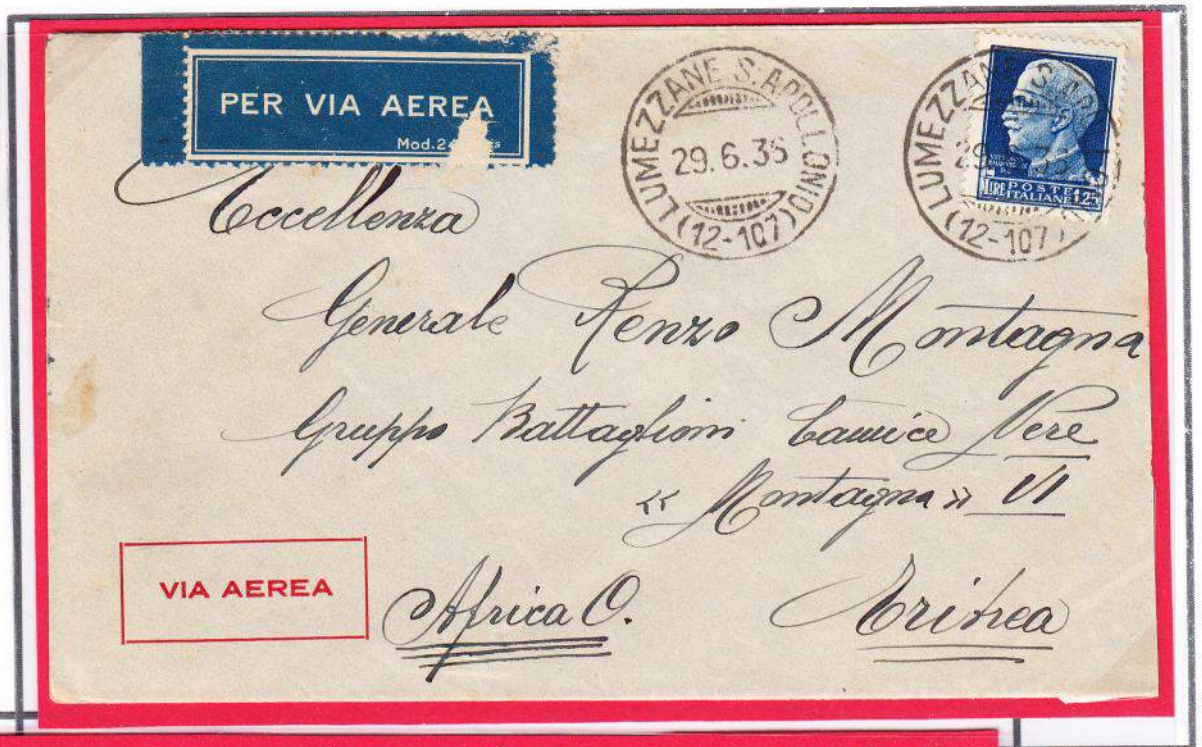 PER VIA AEREA
Mod. 24
LUMEZZANE S. APOLLONIO
29.6.36
(12-107)
LUMEZZANE S. APOLLONIO
29
(12-107)
POSTE
LIRE ITALIANE 1,25
Eccellenza
Generale Renzo Montagna
Gruppo Battaglioni Camice Nere
« Montagna » VI
VIA AEREA
Africa O. Eritrea